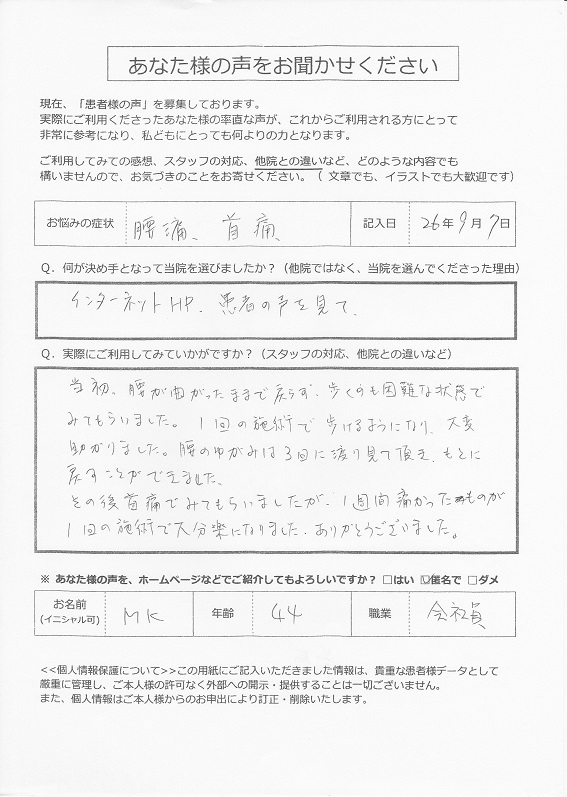 あなた様の声をお聞かせください
現在、「患者様の声」を募集しております。
実際にご利用くださったあなた様の率直な声が、これからご利用される方にとって
非常に参考になり、私どもにとっても何よりの力となります。
ご利用してみての感想、スタッフの対応、他院との違いなど、どのような内容でも
構いませんので、お気づきのことをお寄せください。（ 文章でも、イラストでも大歓迎です）
お悩みの症状 腰痛、首痛 記入日 26年9月7日
Q．何が決め手となって当院を選びましたか？（他院ではなく、当院を選んでくださった理由）
インターネットHP、患者の声を見て、
Q．実際にご利用してみていかがですか？（スタッフの対応、他院との違いなど）
当初、腰が曲がったままで戻らず、歩くのも困難な状態で
みてもらいました。1回の施術で歩けるようになり、大変
助かりました。腰のゆがみは3回に渡り見て頂き、もとに
戻すことができました。
その後首痛でみてもらいましたが、1週間痛かったものが
1回の施術で大分楽になりました。ありがとうございました。
※ あなた様の声を、ホームページなどでご紹介してもよろしいですか？ □はい ☑匿名で □ダメ
お名前 (イニシャル可) MK 年齢 44 職業 会社員
<<個人情報保護について>>この用紙にご記入いただきました情報は、貴重な患者様データとして
厳重に管理し、ご本人様の許可なく外部への開示・提供することは一切ございません。
また、個人情報はご本人様からのお申出により訂正・削除いたします。